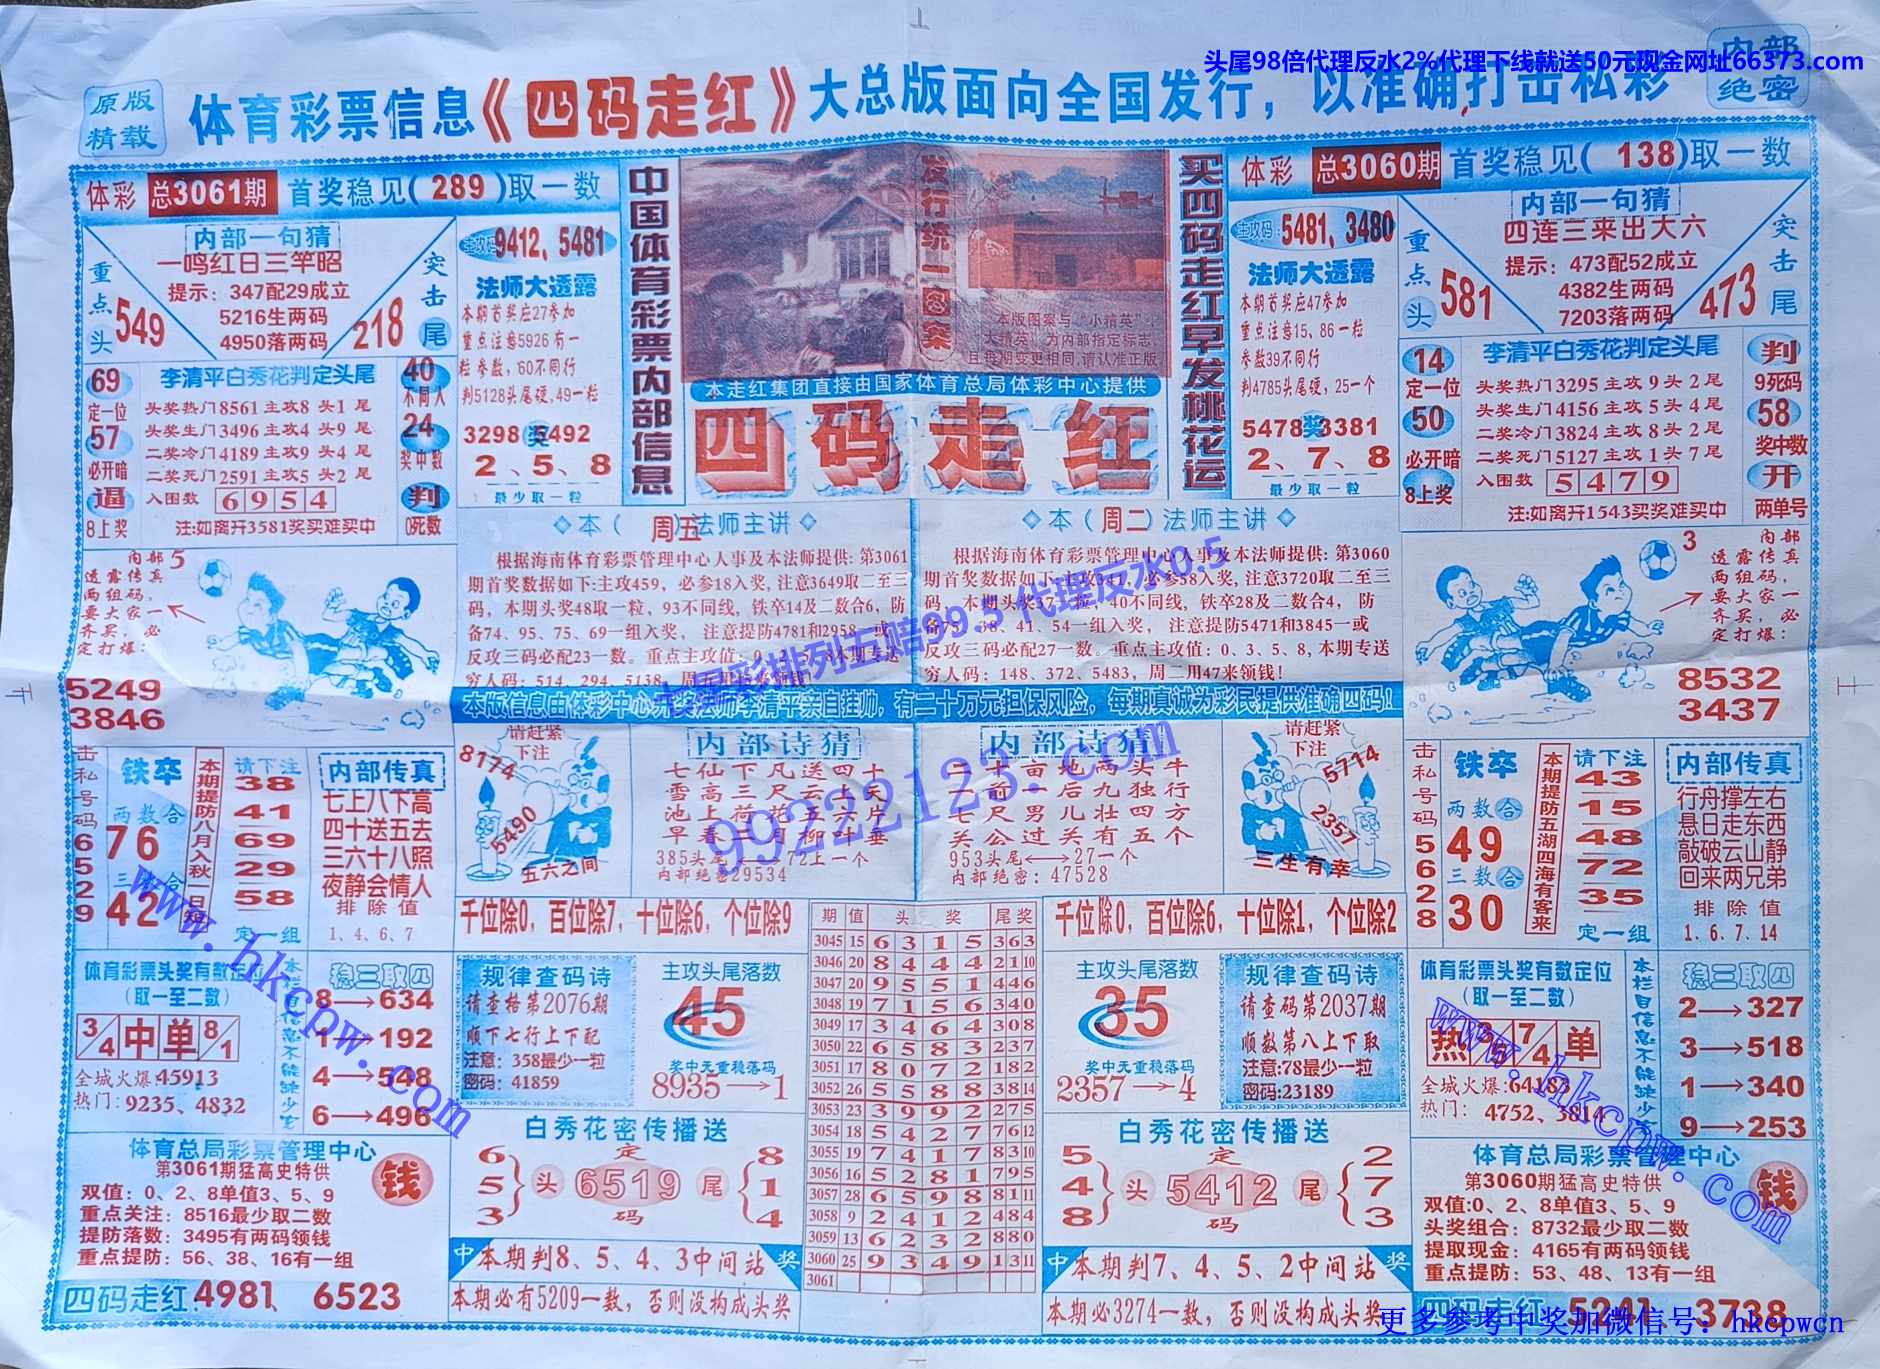 头尾98倍代理反水2%代理下线就送50元现金网址66373.com
原版
精载
体育彩票信息《四码走红》大总版面向全国发行，以准确打击私彩
内部
绝密
体彩 总3061期 首奖稳见(289)取一数
内部一句猜
一鸣红日三竿昭
提示：347配29成立
5216生两码
4950落两码
重点头
549
突击尾
218
主攻码：9412、5481
法师大透露
本期首奖应27参加
重点注意5926有一
粒参数，60不同行
判5128头尾硬，49一粒
3298奖5492
2、5、8
最少取一粒
69
定一位
57
必开暗
逼
8上奖
李清平白秀花判定头尾
头奖热门8561主攻8头1尾
头奖生门3496主攻4头9尾
二奖冷门4189主攻9头4尾
二奖死门2591主攻5头2尾
入围数 6954
注:如离开3581奖买难买中
40
不同人
24
奖中数
判
0死数
中国体育彩票内部信息
发行统一图案
本版图案与“小精英”、
大精英”为内部指定标志
且每期变更相同，请认准正版
本走红集团直接由国家体育总局体彩中心提供
四码走红
买四码走红早发桃花运
体彩 总3060期 首奖稳见(138)取一数
主攻码：5481、3480
法师大透露
本期首奖应47参加
重点注意15、86一粒
参数39不同行
判4785头尾硬，25一个
5478奖3381
2、7、8
最少取一粒
内部一句猜
四连三来出大六
提示：473配52成立
4382生两码
7203落两码
重点头
581
突击尾
473
14
定一位
50
必开暗
8上奖
李清平白秀花判定头尾
头奖热门3295主攻9头2尾
头奖生门4156主攻5头4尾
二奖冷门3824主攻8头2尾
二奖死门5127主攻1头7尾
入围数 5479
注:如离开1543买奖难买中
判
9死码
58
奖中数
开
两单号
内部5
透露传真
两组码，
要大家一
齐买，必
定打爆：
5249
3846
◇本（周五）法师主讲◇
根据海南体育彩票管理中心人事及本法师提供：第3061
期首奖数据如下:主攻459，必参18入奖，注意3649取二至三
码，本期头奖48取一粒，93不同线，铁卒14及二数合6，防
备74、95、75、69一组入奖，注意提防4781和2958一或
反攻三码必配23一数。重点主攻值：0、
穷人码：514、294、5138，
◇本（周二）法师主讲◇
根据海南体育彩票管理中心人事及本法师提供：第3060
期首奖数据如下:主攻347，必参58入奖，注意3720取二至三
码，本期头奖37一粒，40不同线，铁卒28及二数合4，防
备75、38、41、54一组入奖，注意提防5471和3845一或
反攻三码必配27一数。重点主攻值：0、3、5、8，本期专送
穷人码：148、372、5483，周二用47来领钱！
七星彩排列五赔99.5代理反水0.5
本版信息由体彩中心开奖法师李清平亲自挂帅，有二十万元担保风险，每期真诚为彩民提供准确四码！
3
内部
透露传真
两组码，
要大家一
齐买，必
定打爆：
8532
3437
击私号码6529
铁卒
两数合
76
三数合
42
本期提防八月入秋一日短
请下注
38
41
69
29
58
定一组
内部传真
七上八下高
四十送五去
三六十八照
夜静会情人
排除值
1、4、6、7
8174
请赶紧
下注
5490
五六之间
内部诗猜
七仙下凡送四十
雪高三尺云上天
池上荷花五六片
早春二月柳叶垂
385头尾⟷72上一个
内部绝密29534
内部诗猜
二十亩地两头牛
一前一后九独行
七尺男儿壮四方
关公过关有五个
953头尾⟷27一个
内部绝密：47528
99222123.com
请赶紧
下注
5714
2357
三生有幸
击私号码5628
铁卒
两数合
49
三数合
30
本期提防五湖四海有客来
请下注
43
15
48
72
35
定一组
内部传真
行舟撑左右
悬日走东西
敲破云山静
回来两兄弟
排除值
1.6.7.14
千位除0，百位除7，十位除6，个位除9
千位除0，百位除6，十位除1，个位除2
体育彩票头奖有数定位
（取一至二数）
3/4 中 单 8/1
全城火爆:45913
热门:9235、4832
本栏目信息不能缺少它
稳三取四
8→634
1→192
4→548
6→496
www.hkcpw.com
规律查码诗
请查格第2076期
顺下七行上下配
注意：358最少一粒
密码：41859
主攻头尾落数
45
奖中无重稳落码
8935→1
期 值 头 奖 尾奖
3045 15 6 3 1 5 36 3
3046 20 8 4 4 4 21 10
3047 20 9 5 5 1 44 6
3048 19 7 1 5 6 34 0
3049 17 3 4 6 4 30 8
3050 22 6 5 8 3 23 7
3051 17 8 0 7 2 18 2
3052 26 5 5 8 8 38 14
3053 23 3 9 9 2 27 5
3054 18 5 4 2 7 76 12
3055 19 7 4 1 7 83 10
3056 16 5 2 8 1 79 5
3057 28 6 5 9 8 81 11
3058 9 2 4 1 2 48 4
3059 13 6 2 3 2 88 0
3060 25 9 3 4 9 13 11
3061
主攻头尾落数
35
奖中无重稳落码
2357→4
规律查码诗
请查码第2037期
顺数第八上下取
注意:78最少一粒
密码:23189
体育彩票头奖有数定位
（取一至二数）
全城火爆:64183
热门：4752、3814
本栏目信息不能缺少
稳三取四
2→327
3→518
1→340
9→253
www.hkcpw.com
体育总局彩票管理中心
第3061期猛高史特供
双值：0、2、8单值3、5、9
重点关注：8516最少取二数
提防落数：3495有两码领钱
重点提防：56、38、16有一组
钱
四码走红:4981、6523
白秀花密传播送
6
5
3
头
定
6519
码
尾
8
1
4
中 本期判8、5、4、3中间站 奖
本期必有5209一数，否则没构成头奖
白秀花密传播送
5
4
8
头
定
5412
码
尾
2
7
3
中 本期判7、4、5、2中间站 奖
本期必3274一数，否则没构成头奖
体育总局彩票管理中心
第3060期猛高史特供
双值:0、2、8单值3、5、9
头奖组合：8732最少取二数
提取现金：4165有两码领钱
重点提防：53、48、13有一组
钱
四码走红:5241、3738
更多参考中奖加微信号：hkcpwcn